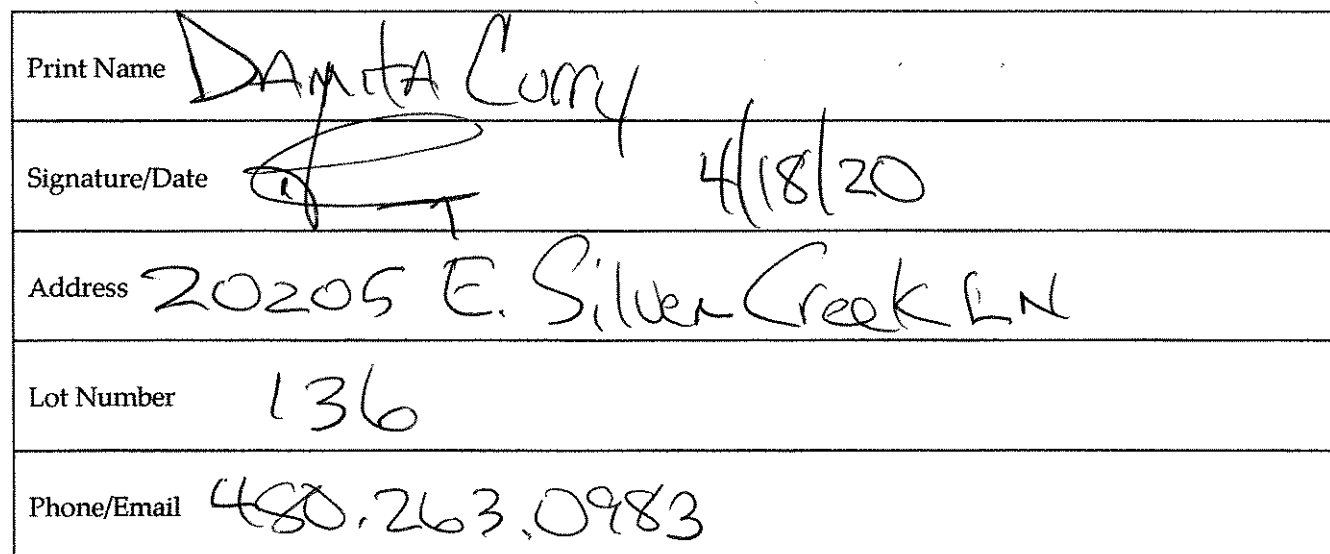 Print Name DAMITA Curry
Signature/Date 4/18/20
Address 20205 E. Silver Creek LN
Lot Number 136
Phone/Email 480.263.0983